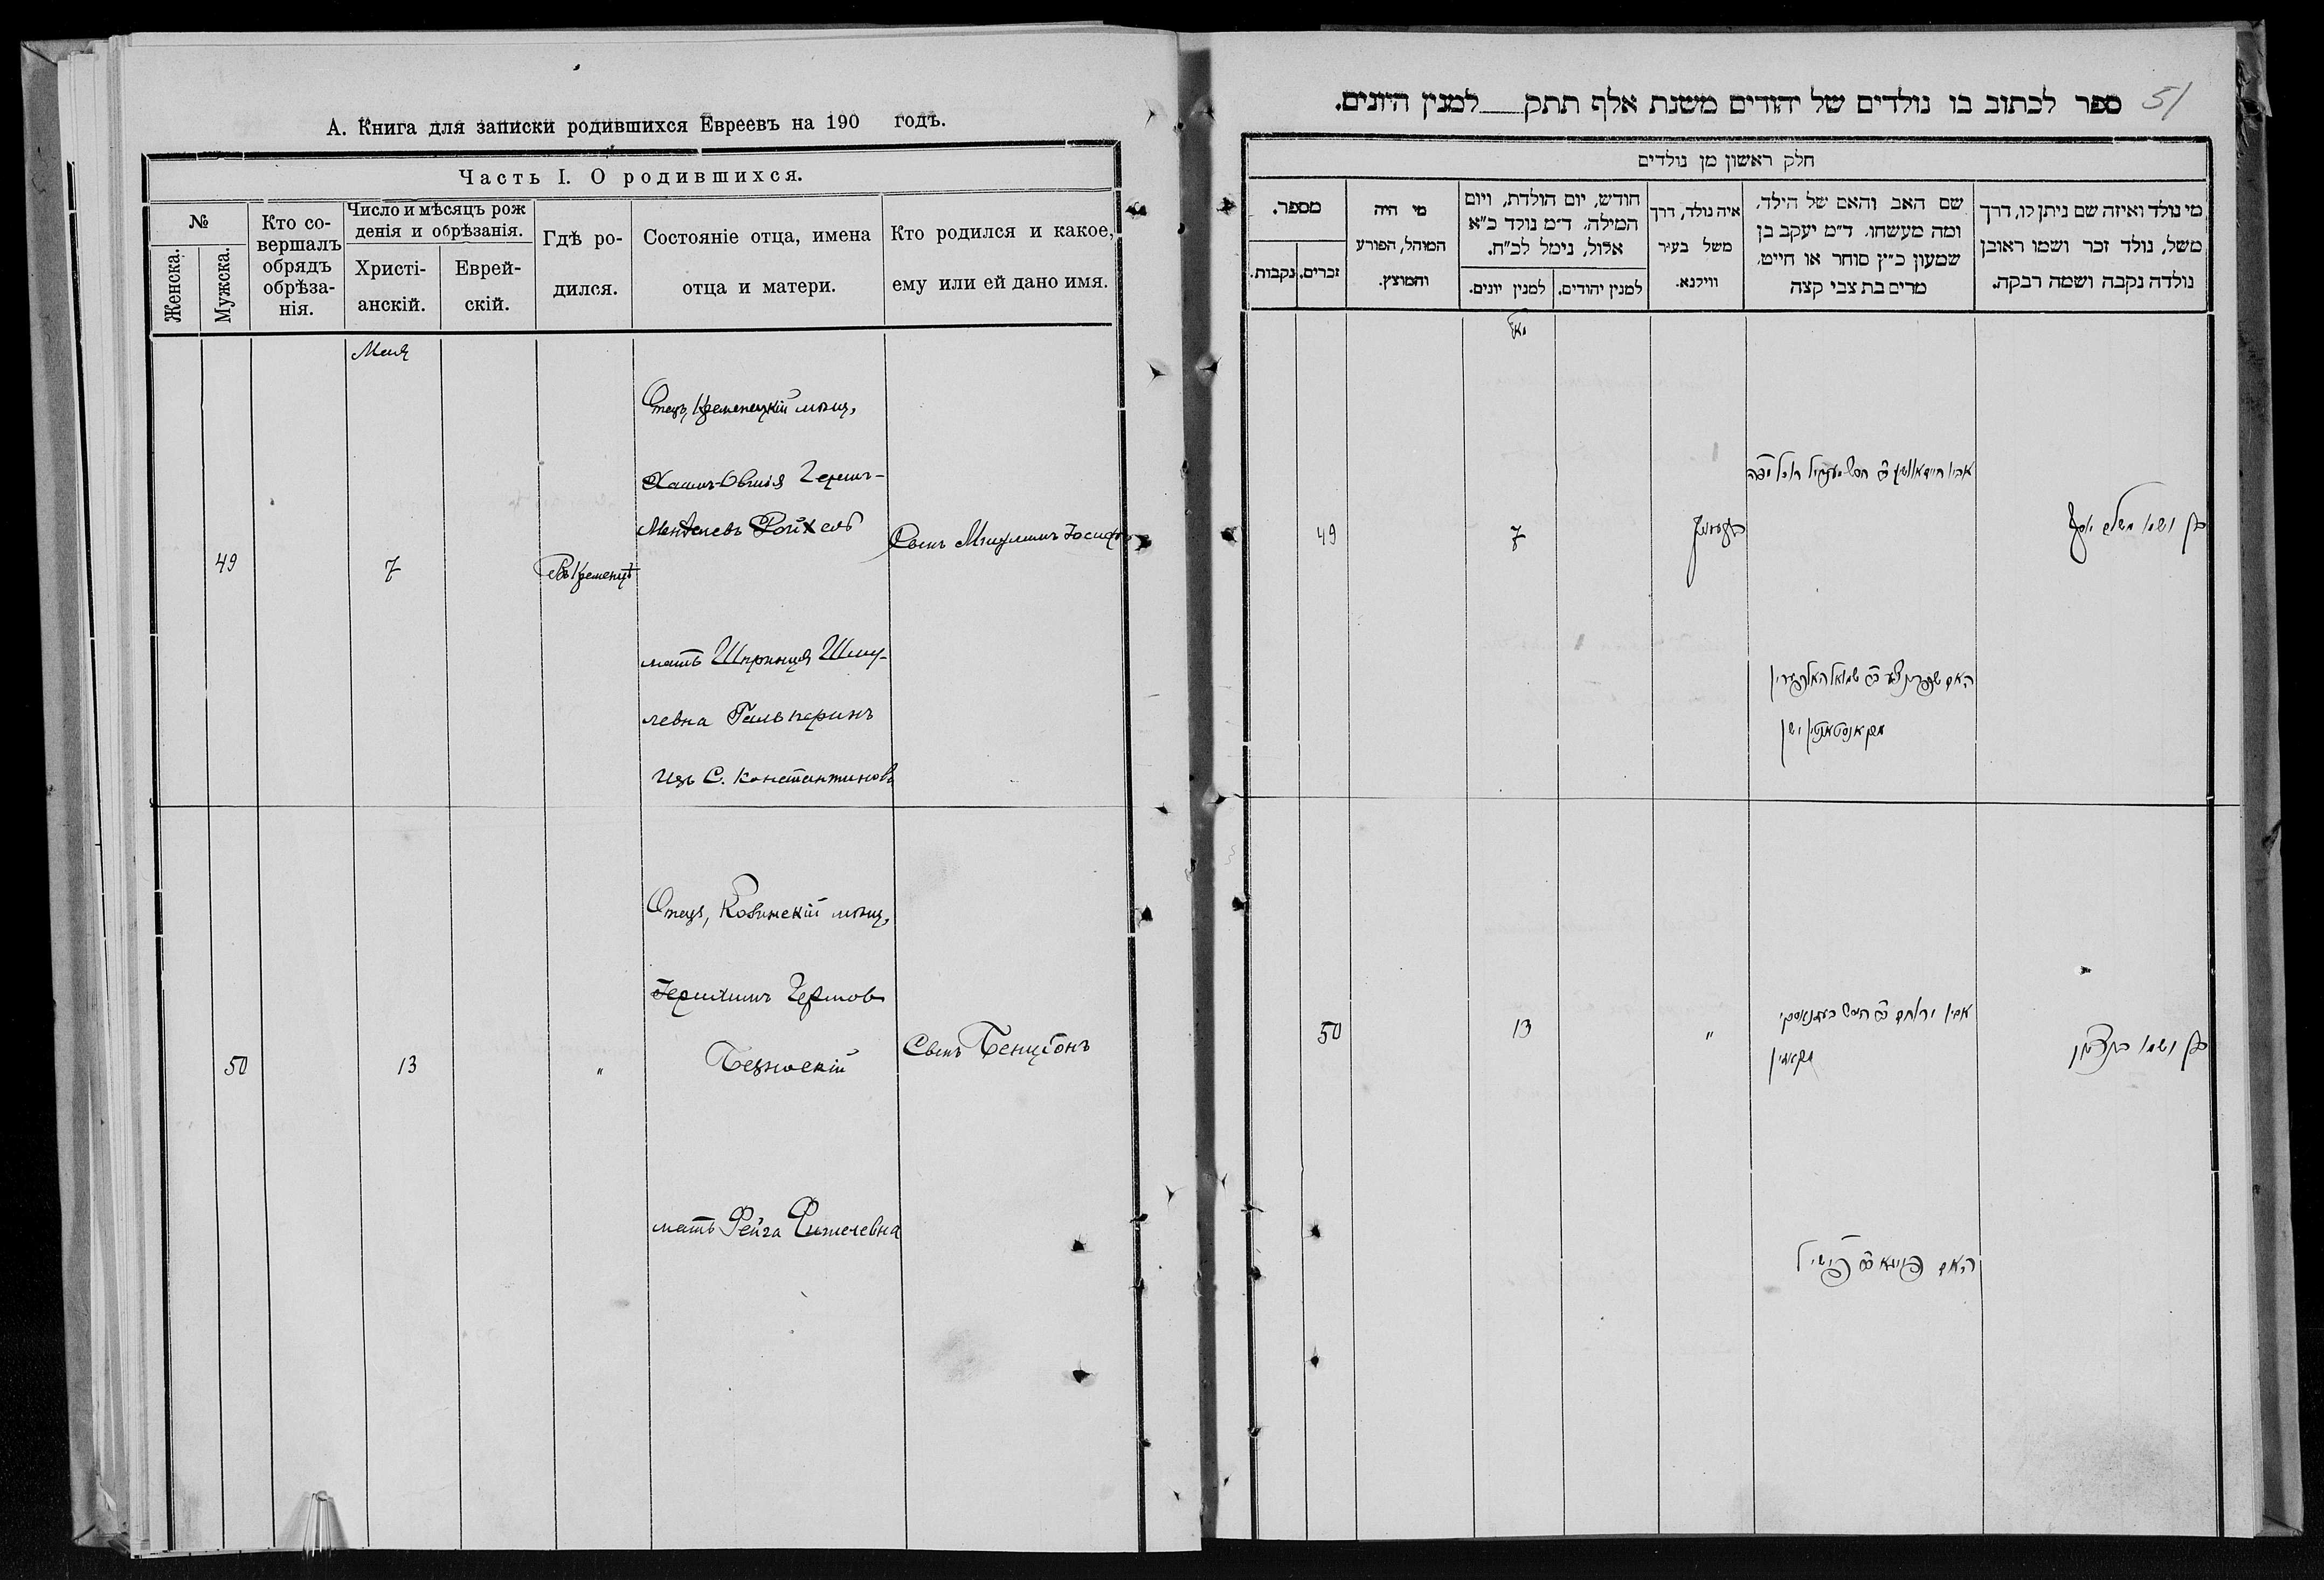 А. Книга для записки родившихся Евреевъ на 190 годъ.
Часть I. О родившихся.
№
Женска.
Мужска.
Кто со-
вершалъ
обрядъ
обрѣза-
нія.
Число и мѣсяцъ рож
денія и обрѣзанія.
Христі-
анскій.
Еврей-
скій.
Гдѣ ро-
дился.
Состояніе отца, имена
отца и матери.
Кто родился и какое,
ему или ей дано имя.
Мая
49
7
Въ Кременцѣ
Отецъ, Кременецкій мѣщ,
Хаимъ-Овшія Гершъ-
Менделевъ Ройхель
мать Шпринця Шму-
левна Гальперинъ
изъ С. Константинова
Сынъ Мшулимъ Іосифъ
50
13
"
Отецъ, Ковенскій мѣщ,
Іерихимъ Гершов
Сынъ Бенціонъ
мать Фейга Фишелевна
51
ספר לכתוב בו נולדים של יהודים משנת אלף תתק למנין היונים.
חלק ראשון מן נולדים
מי נולד ואיזה שם ניתן לו, דרך
משל, נולד זכר ושמו ראובן
נולדה נקבה ושמה רבקה.
שם האב והאם של הילד,
ומה מעשהו. ד"מ יעקב בן
שמעון כ"ץ סוחר או חייט,
מרים בת צבי קצה
איה נולד, דרך
משל בעיר
ווילנא.
חודש, יום הולדת, ויום
המילה. ד"מ נולד כ"א
אלול, נימל לכ"ח.
למנין יהודים.
למנין יונים.
מי היה
המוהל, הפורע
והמוצץ.
מספר.
זכרים.
נקבות.
מאי
בן ושמו משלם יוסף
האם שפרינצע בת שמואל האלפערין
מקאנסטאנטין ישן
7
49
בן ושמו בן ציון
האם פייגא בת פישיל
"
13
50